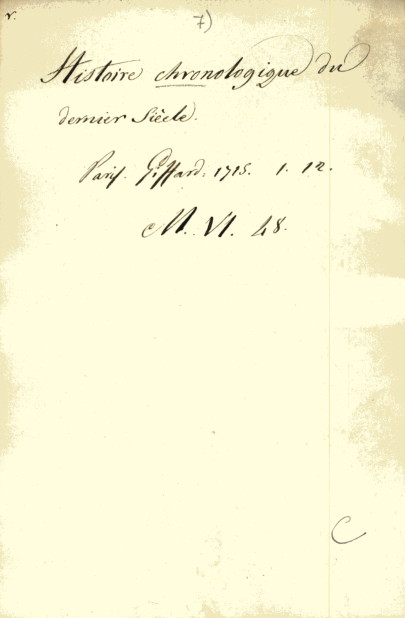 r.
7)
Histoire chronologique du
dernier Siècle.
Paris. Giffard. 1715. 1. 12.
M. VI. 48.
C